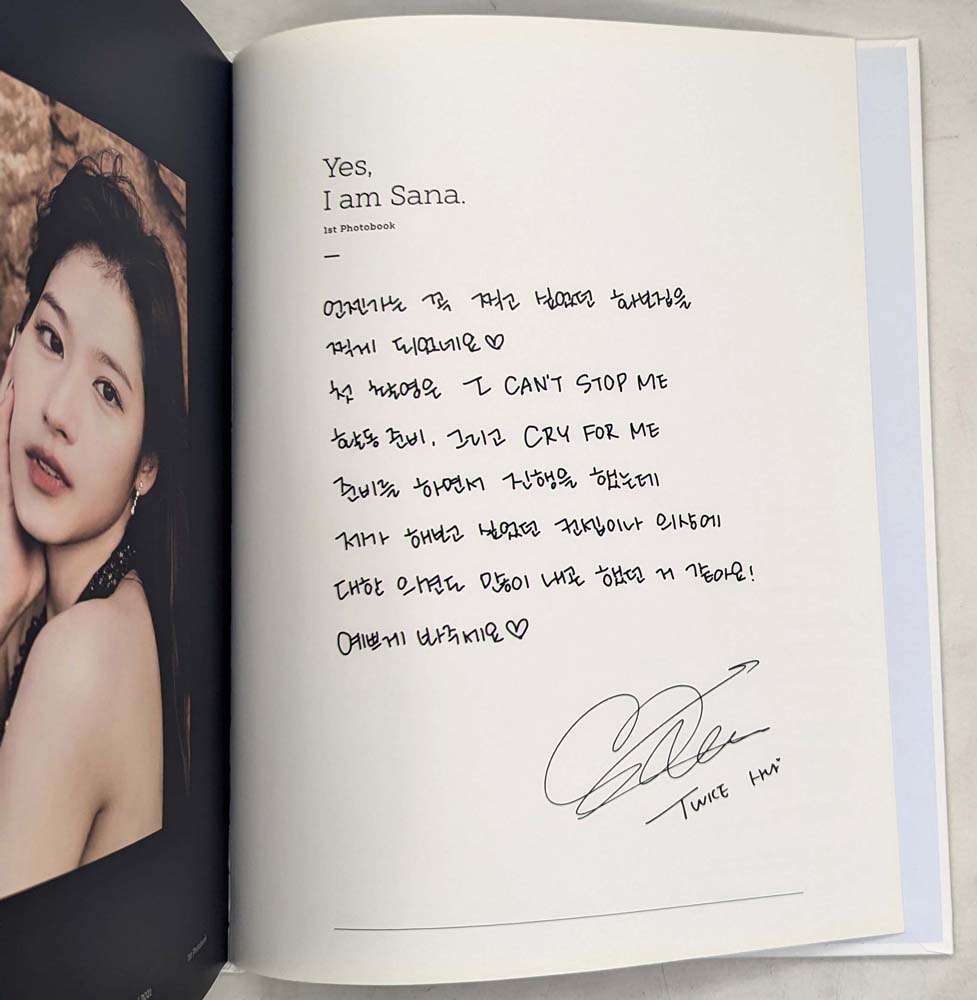 Yes,
I am Sana.
1st Photobook
언젠가는 꼭 찍고 싶었던 화보집을
찍게 되었네요♡
첫 촬영은 I CAN'T STOP ME
활동 준비, 그리고 CRY FOR ME
준비를 하면서 진행을 했는데
제가 해보고 싶었던 컨셉이나 의상에
대한 의견도 많이 내고 했었던 거 같아요!
예쁘게 봐주세요♡
TWICE 사나
1st Photobook
2021